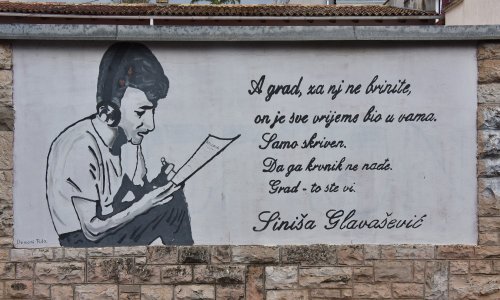 A grad, za nj ne brinite,
on je sve vrijeme bio u vama.
Samo skriven.
Da ga krvnik ne nađe.
Grad - to ste vi.
Siniša Glavašević